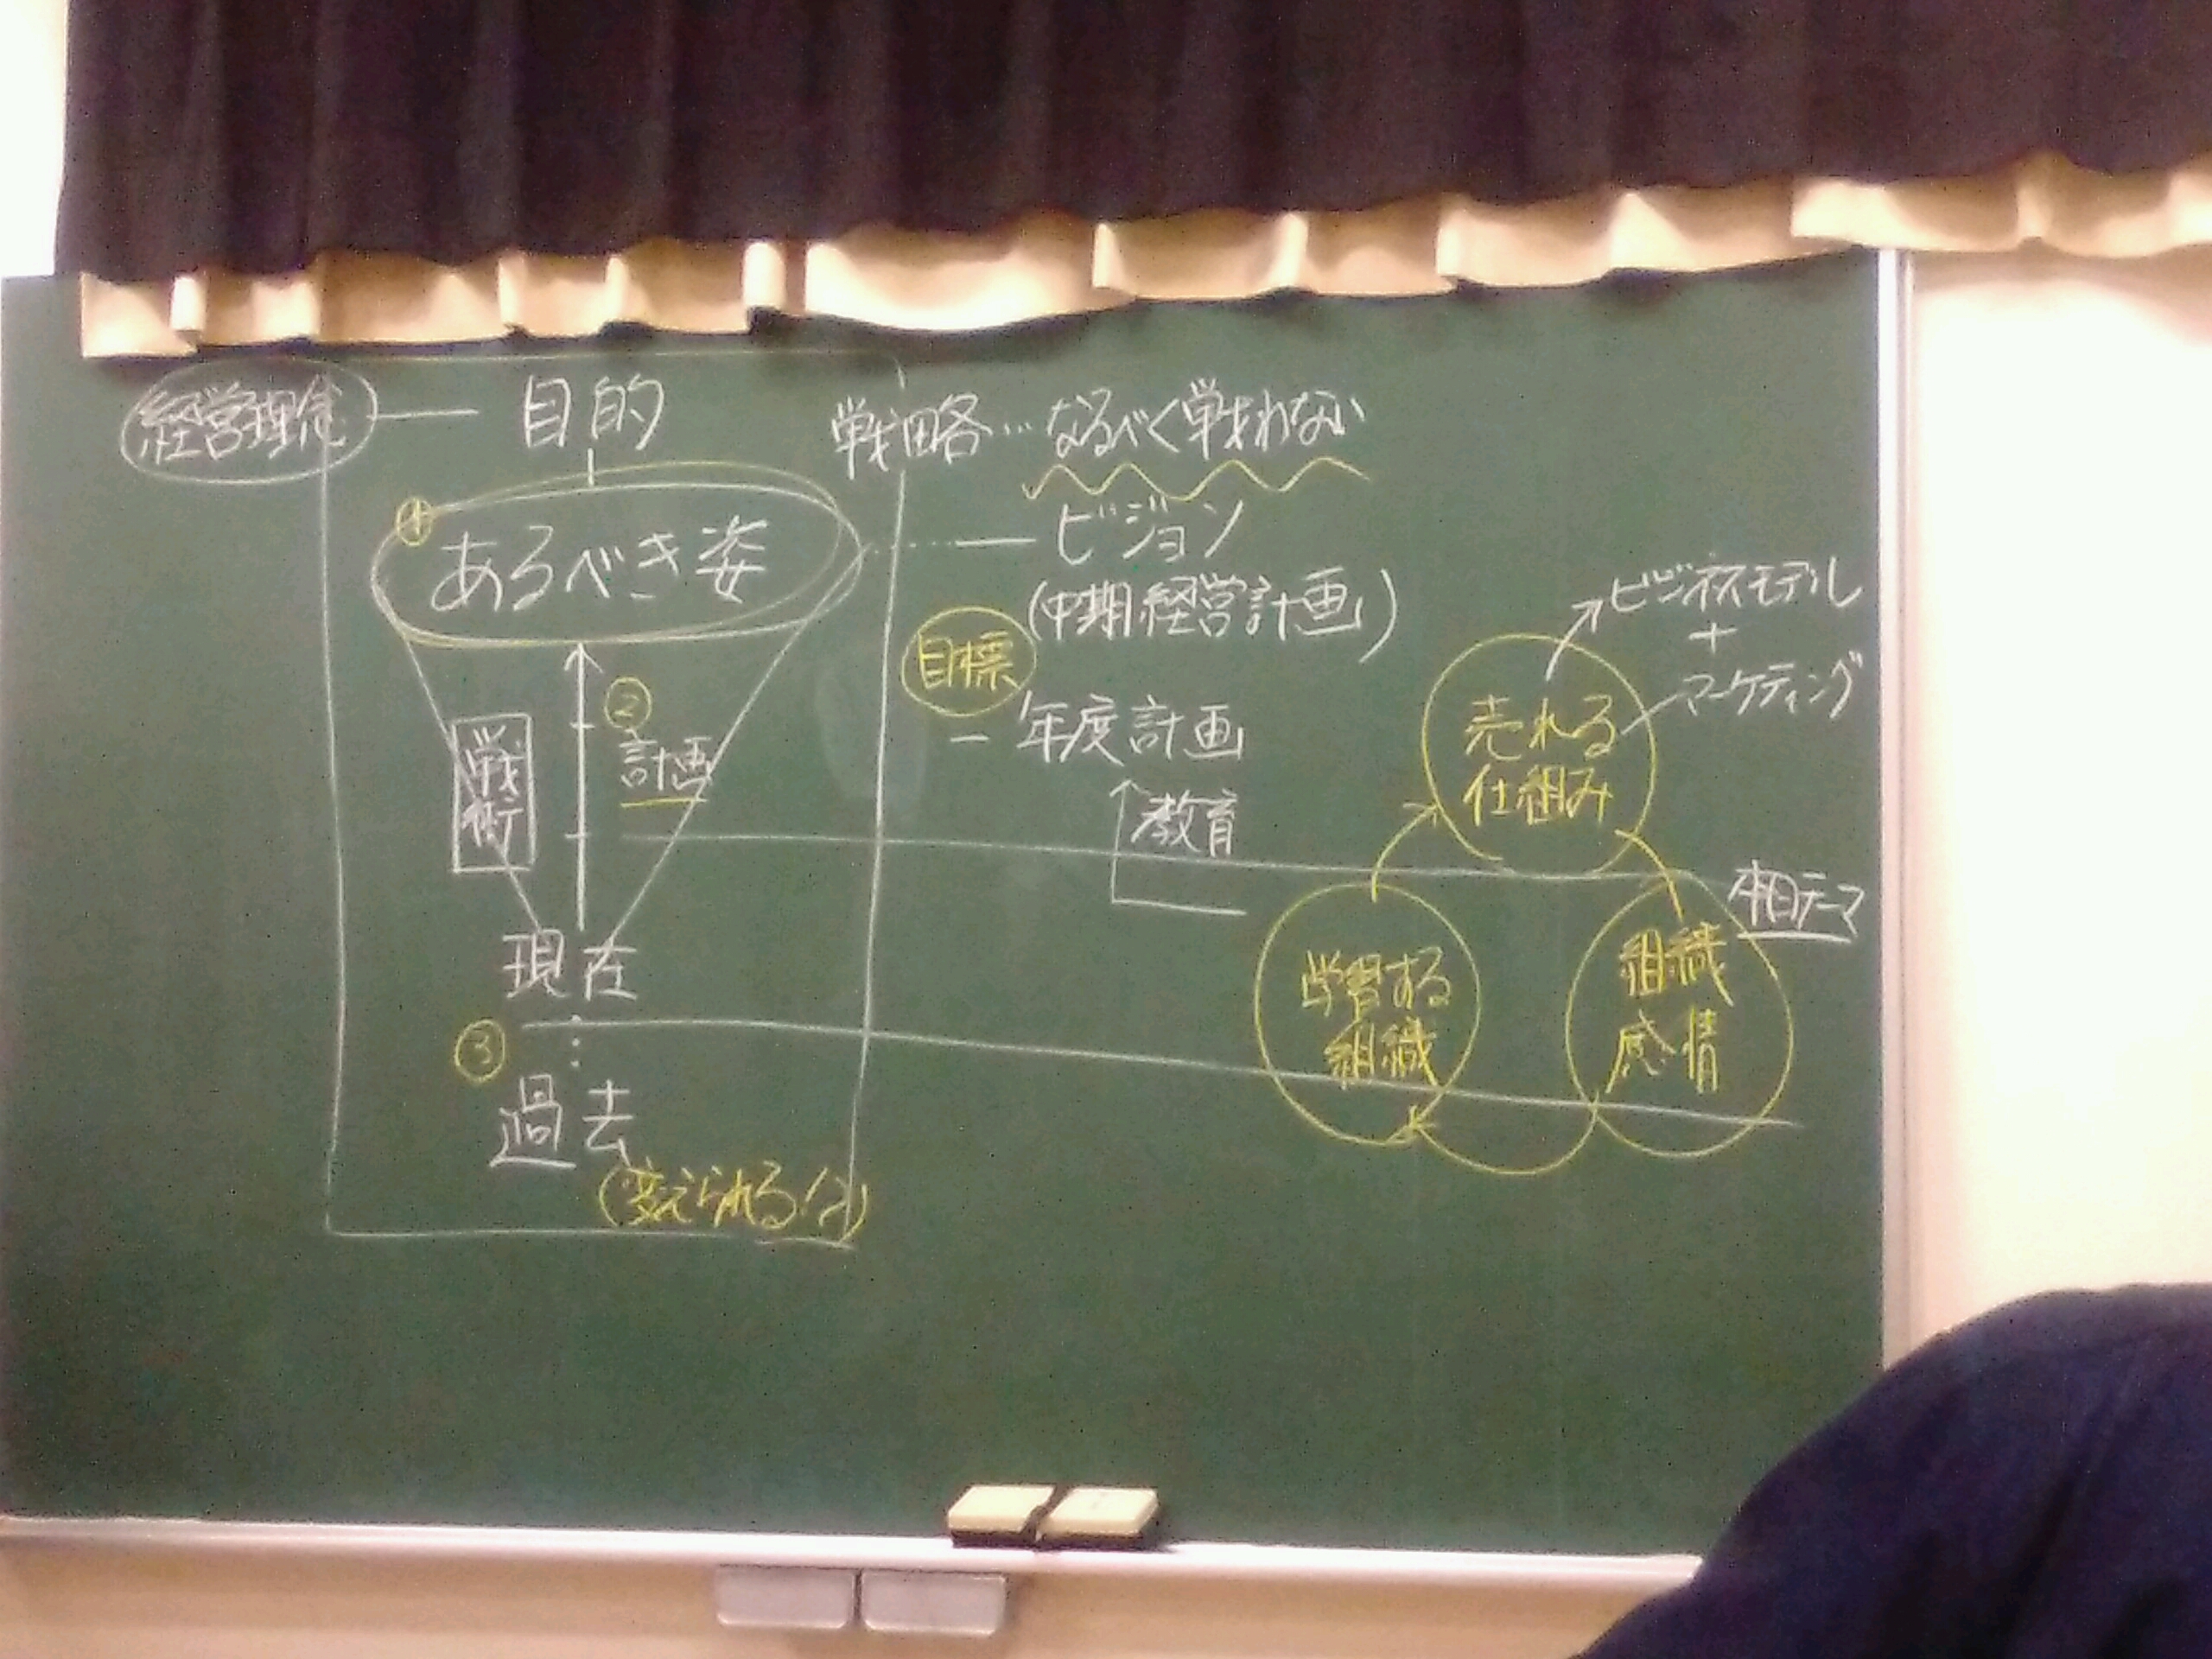 経営理念
目的
戦略…なるべく戦わない
①
あるべき姿
ビジョン
(中期経営計画)
目標
年度計画
教育
②
計画
戦術
現在
③
過去
(変えられる!?)
ビジネスモデル
+
マーケティング
売れる
仕組み
本日テーマ
学習する
組織
組織
感情